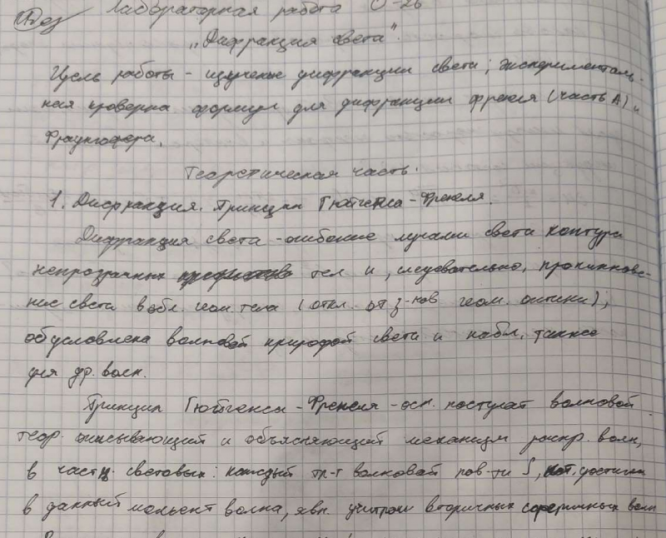 Лабораторная работа О-26
„Дифракция света".
Цель работы - изучение дифракции света; эксперименталь-
ная проверка формул для дифракции Френеля (часть А) и
Фраунгофера.
Теоретическая часть.
1. Дифракция. Принцип Гюйгенса-Френеля.
Дифракция света - огибание лучами света контура
непрозрачных тел и, следовательно, проникнове-
ние света в обл. геом. тени (откл. от з-нов геом. оптики);
обусловлена волновой природой света и набл. также
для др. волн.
Принцип Гюйгенса-Френеля - осн. постулат волновой
теор. описывающий и объясняющий механизм распр. волн,
в част. световых: каждый эл-т волновой пов-ти S, кот. достигла
в данный момент волна, явл. центром вторичных волн